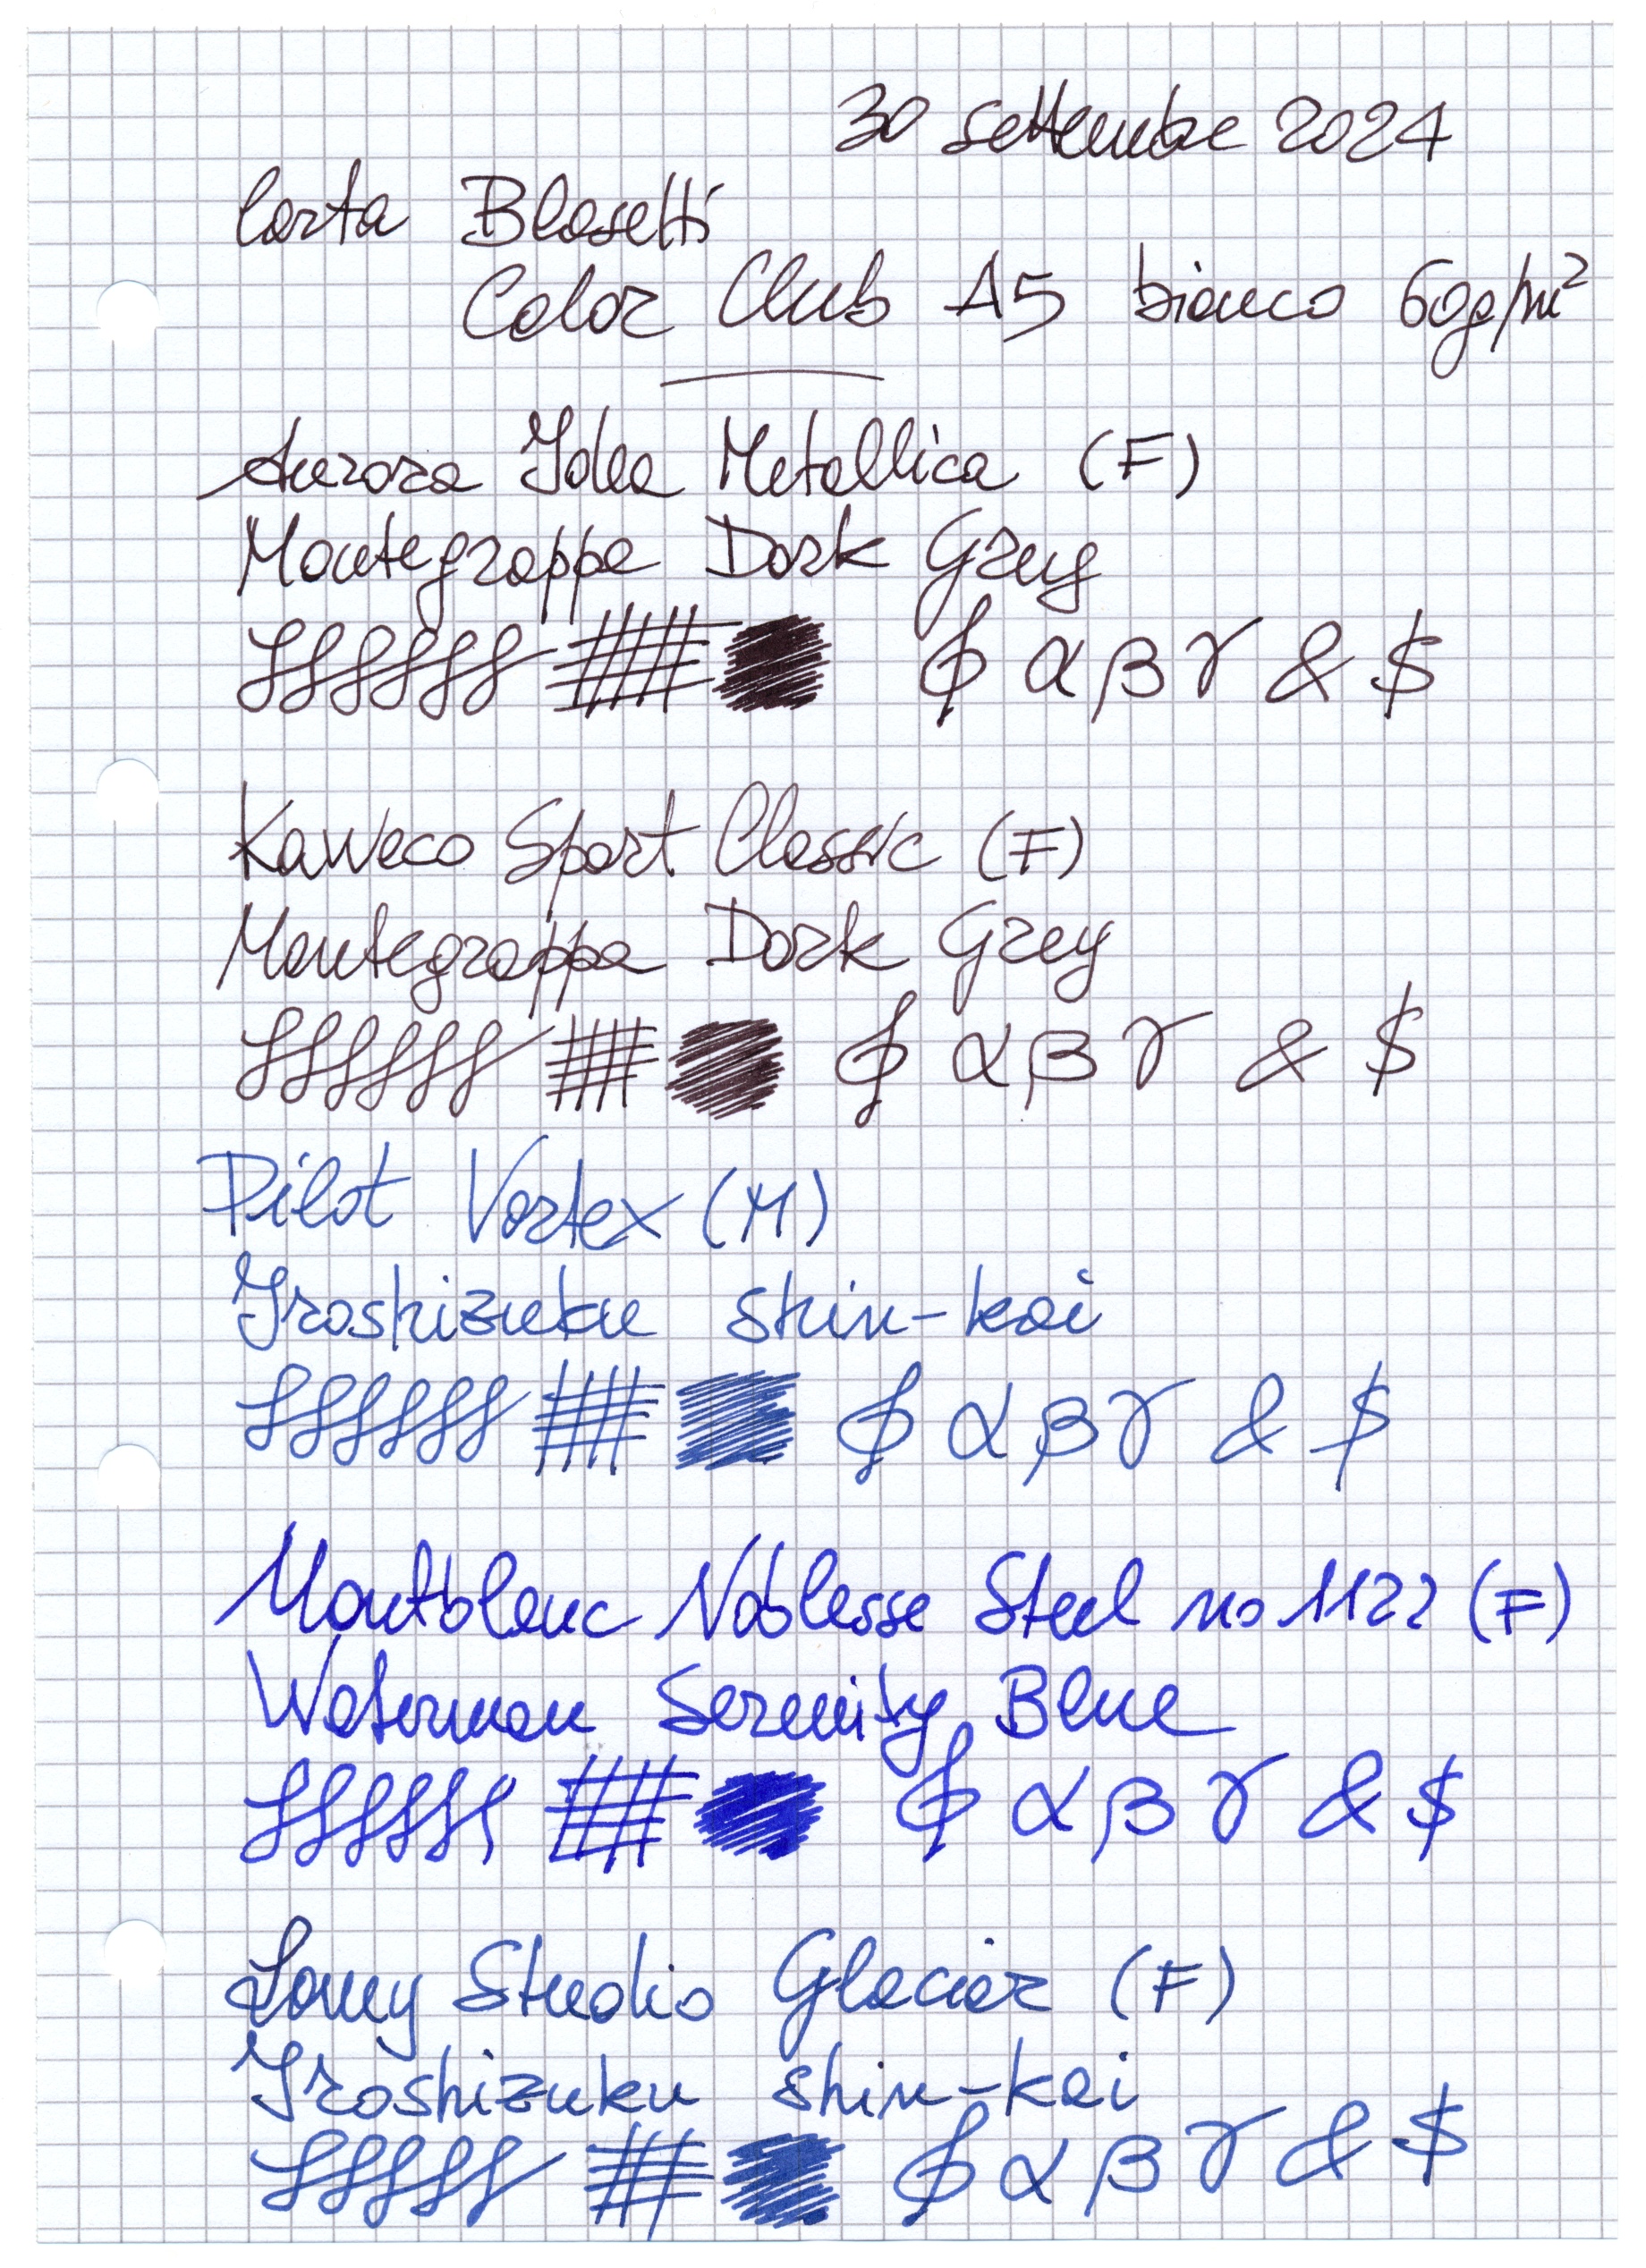 30 settembre 2024
Carta Blasetti
Color Club A5 bianco 60g/m²
Aurora Idea Metallica (F)
Montegrappa Dark Grey
α β γ & $
Kaweco Sport Classic (F)
Montegrappa Dark Grey
α β γ & $
Pilot Vortex (M)
Iroshizuku shin-kai
α β γ & $
Montblanc Noblesse Steel no 1122 (F)
Waterman Serenity Blue
α β γ & $
Lamy Studio Glacier (F)
Iroshizuku shin-kai
α β γ & $